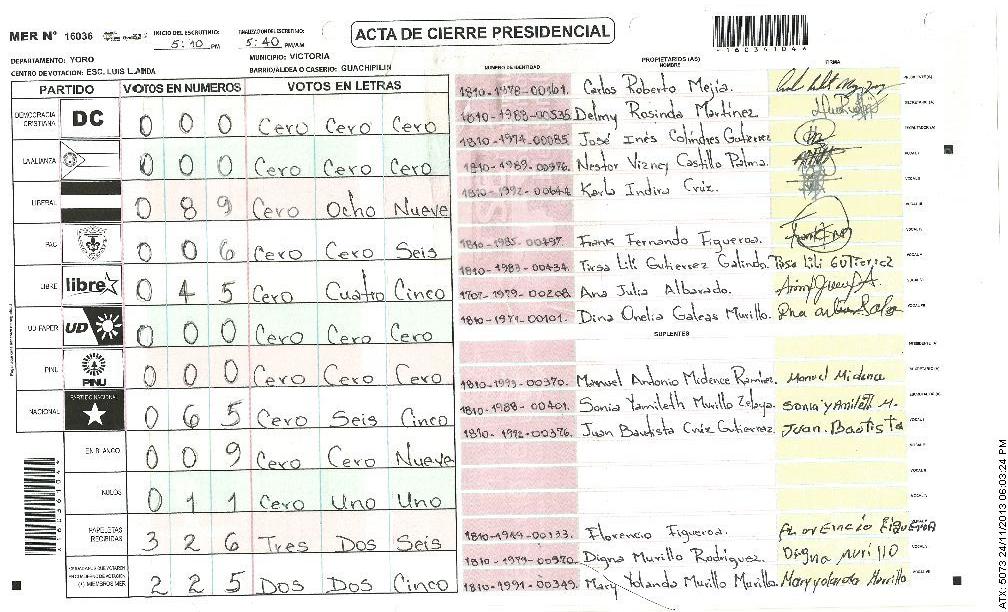 MER N° 16036
INICIO DEL ESCRUTINIO: 5:10 PM
FINALIZACION DEL ESCRUTINIO: 5:40 PM/AM
ACTA DE CIERRE PRESIDENCIAL
DEPARTAMENTO: YORO
MUNICIPIO: VICTORIA
CENTRO DE VOTACION: ESC. LUIS LANDA
BARRIO/ALDEA O CASERIO: GUACHIPILIN
PARTIDO VOTOS EN NUMEROS VOTOS EN LETRAS
DEMOCRACIA CRISTIANA DC 0 0 0 Cero Cero Cero
LA ALIANZA 0 0 0 Cero Cero Cero
LIBERAL 0 8 9 Cero Ocho Nueve
PAC 0 0 6 Cero Cero Seis
LIBRE libre 0 4 5 Cero Cuatro Cinco
UD-FAPER UD 0 0 0 Cero Cero Cero
PINU PINU 0 0 0 Cero Cero Cero
NACIONAL PARTIDO NACIONAL 0 6 5 Cero Seis Cinco
EN BLANCO 0 0 9 Cero Cero Nueve
NULOS 0 1 1 Cero Uno Uno
PAPELETAS RECIBIDAS 3 2 6 Tres Dos Seis
2 2 5 Dos Dos Cinco
NUMERO DE IDENTIDAD PROPIETARIOS (AS) NOMBRE FIRMA
Carlos Roberto Mejia.
1810-1988-00535 Delmy Rosinda Martinez
1810-1974-00085 José Inés Colindres Gutierrez
1810-1989-00976 Nestor Vizney Castillo Palma.
1810-1992-00644 Karla Indira Cruz.
1810-1985-00497. Frank Fernando Figueroa.
1810-1983-00434. Tirsa Lili Gutierrez Galindo. Tirsa Lili Gutierrez
1707-1979-00208 Ana Julia Albarado.
1810-1971-00101. Dina Onelia Galeas Murillo.
SUPLENTES
1810-1993-00370. Manuel Antonio Midence Ramirez. Manuel Midence
1810-1988-00401. Sonia Yamileth Murillo Zelaya. Sonia Yamileth M.
1810-1992-00376. Juan Bautista Cruz Gutierrez. Juan Bautista
1810-1949-00133. Florencio Figueroa.
1810-1979-00570. Digna Murillo Rodriguez. Digna Murillo
1810-1991-00349. Mary Yolanda Murillo Murillo. Mary yolanda Murillo
ATX-5073 24/11/2013 06:03:24 PM